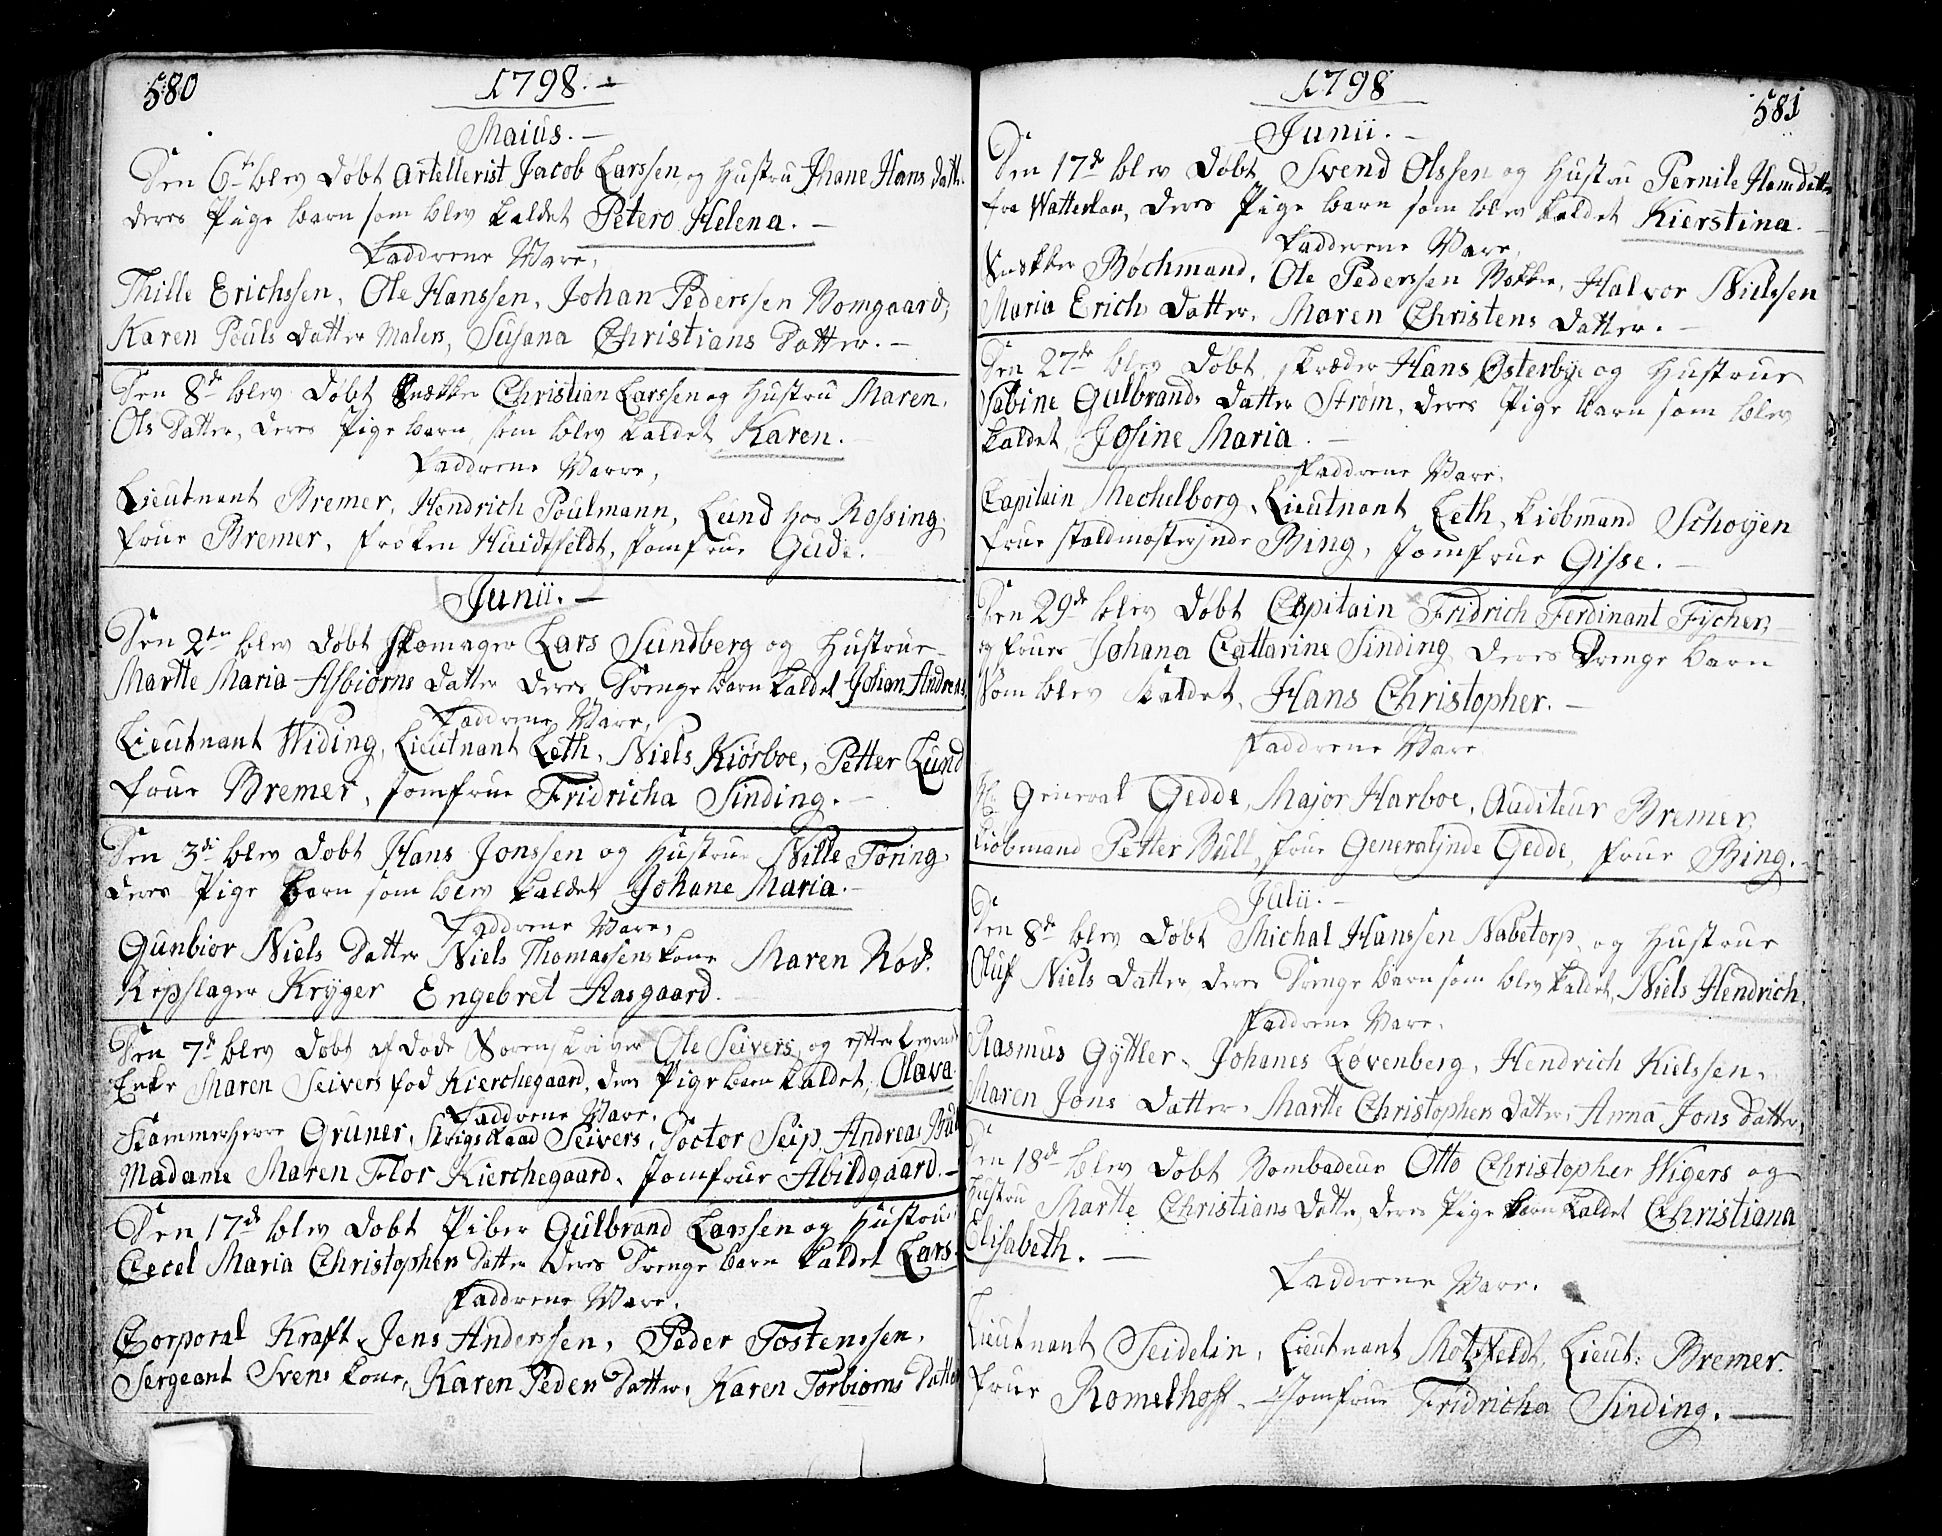 580
1798. -
Maius. -
Den 6te blev Døbt Artellerist Jacob Larssen og Hustru Jhane Hans datt.
deres Pige barn som blev kaldet Petero Helena. -
Faddrene Vare,
Thille Erichssen, Ole Hanssen, Johan Pederssen Bomgaard,
Karen Pouls datter Malers, Susana Christians Datter. -
Den 8de blev Døbt Christian Larssen og Hustru Maren
Ols Datter, deres Pige barn, som blev kaldet Karen. -
Faddrene Varre,
Lieutnant Bremer, Hendrich Poulmann, Lund hos Rossing,
frue Bremer, frøken Huidtfeldt, Jomfrue Gude. -
Junii. -
Den 2den blev Døbt Skomager Lars Sundberg og Hustrue
Martte Maria Asbiørns datter deres Drenge barn kaldet Johan Andreas
Faddrene Vare,
Lieutnant Widing, Lieutnant Leth, Niels Kiørboe, Petter Lund
frue Bremer, Jomfrue Fridricha Sinding. -
Den 3die blev Døbt Hans Jonssen og Hustrue Nille Tøring
deres Pige barn som blev kaldet Johane Maria. -
Faddrene Vare,
Gunbior Niels Datter Niels Thomassens kone Maren Rød.
Repslager Krÿger Engebret Aasgaard.
Den 7de blev Døbt afdøde Sorenskriver Ole Seivers og efterlevende
Enke Maren Seivers fød Kierchegaard, deres Pige barn kaldet, Olava
Faddrene Vare,
Kammerherre Gruner, Krigs Raad Seivers, Doctor Seip, Andreas Bull
Madame Maren Flor Kierchegaard, Jomfrue Abildgaard. -
Den 17de blev Døbt Piber Gulbrand Larssen og Hustrue
Cecel Maria Christophers Datter deres Drenge barn kaldet Lars.
Faddrene Vare,
Corporal Kraft, Jens Anderssen, Peder Tostenssen,
Sergeant Svens kone, Karen Peders Datter, Karen Torbiørns Datter
1798
581
Junii. -
Den 17de blev Døbt Svend Olssen og Hustru Pernile Hans datter
fra Watterlan, deres Pige barn som blev kaldet Kierstina. -
Faddrene Vare,
Snekker Bøchmand, Ole Pederssen Bakke, Halvor Nielssen
Maria Erichs datter, Maren Christens datter. -
Den 27de blev Døbt skræder Hans Østerbye og Hustrue
Sabine Gulbrands datter Strøm, deres Pige barn som blev
kaldet, Josine Maria. -
Faddrene Vare,
Capitain Mechelborg, Lieutnant Leth, kiøbmand Schøyen
frue staldmesterinde Bing, Jomfrue Gisse. -
Den 29de blev Døbt Capitain Fridrich Ferdinant Fÿcher,
og frue Johana Cattarine Sinding deres Drenge barn
som blev kaldet, Hans Christopher. -
Faddrene Vare
Hr General Gedde, Major Harboe, Auditeur Bremer,
kiøbmand Petter Bull, frue Generalinde Gedde, frue Bing.
Julii. -
Den 8de blev Døbt Michal Hanssen Nabetorp og Hustrue
Oluf Niels datter deres Drenge barn som blev kaldet, Niels Hendrich,
Faddrene Vare,
Rasmus Gyttler, Johanes Løvenberg, Hendrich Kielssen,
Maren Jons Datter, Martte Christophers datter, Anna Jons datter,
Den 18de blev Døbt Bombadeur Otto Christopher Wigers og
Hustru Martte Christians datter, deres Pige barn kaldet Christiana
Elisabeth. -
Faddrene Vare.
Lieutnant Seidelin, Lieutnant Motzfeldt, Lieut: Bremer.
frue Romelhoff, Jomfrue Fridricha Sinding. -